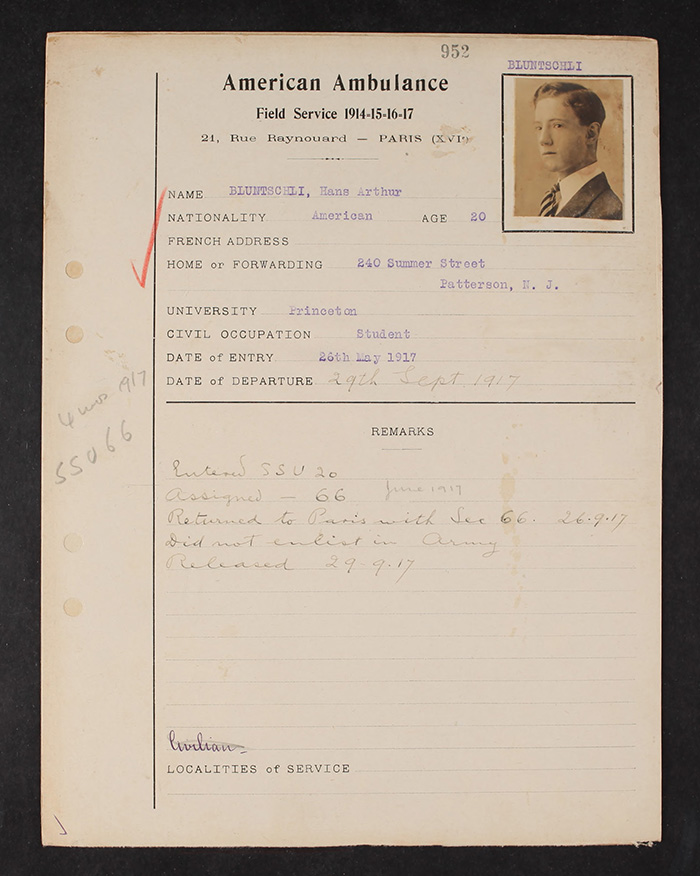 952
BLUNTSCHLI
American Ambulance
Field Service 1914-15-16-17
21, Rue Raynouard — PARIS (XVIe)
NAME BLUNTSCHLI, Hans Arthur
NATIONALITY American AGE 20
FRENCH ADDRESS
HOME or FORWARDING 240 Summer Street
Patterson, N. J.
UNIVERSITY Princeton
CIVIL OCCUPATION Student
DATE of ENTRY 26th May 1917
DATE of DEPARTURE 29th Sept 1917
4 mos 1917
SSU 66
REMARKS
Entered SSU 20
Assigned — 66 June 1917
Returned to Paris with Sec 66. 26.9.17
Did not enlist in Army
Released 29-9.17
Civilian
LOCALITIES of SERVICE